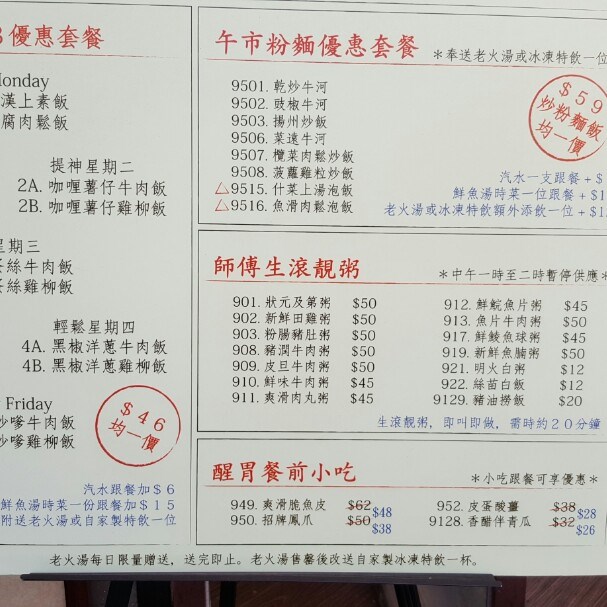 優惠套餐
Monday
漢上素飯
腐肉鬆飯
提神星期二
2A. 咖喱薯仔牛肉飯
2B. 咖喱薯仔雞柳飯
星期三
絲牛肉飯
絲雞柳飯
輕鬆星期四
4A. 黑椒洋蔥牛肉飯
4B. 黑椒洋蔥雞柳飯
Friday
炒嗲牛肉飯
炒嗲雞柳飯
$46
均一價
汽水跟餐加$6
鮮魚湯時菜一份跟餐加$15
附送老火湯或自家製特飲一位
午市粉麵優惠套餐 *奉送老火湯或冰凍特飲一位
9501. 乾炒牛河
9502. 豉椒牛河
9503. 揚州炒飯
9506. 菜遠牛河
9507. 欖菜肉鬆炒飯
9508. 菠蘿雞粒炒飯
△9515. 什菜上湯泡飯
△9516. 魚滑肉鬆泡飯
$59
炒粉麵飯
均一價
汽水一支跟餐+$
鮮魚湯時菜一位跟餐+$1
老火湯或冰凍特飲額外添飲一位+$1
師傅生滾靚粥 *中午一時至二時暫停供應*
901. 狀元及第粥 $50
902. 新鮮田雞粥 $50
903. 粉腸豬肚粥 $50
908. 豬潤牛肉粥 $50
909. 皮旦牛肉粥 $50
910. 鮮味牛肉粥 $45
911. 爽滑肉丸粥 $45
912. 鮮鯇魚片粥 $45
913. 魚片牛肉粥 $50
917. 鮮鯪魚球粥 $45
919. 新鮮魚腩粥 $50
921. 明火白粥 $12
922. 絲苗白飯 $12
9129. 豬油撈飯 $20
生滾靚粥，即叫即做，需時約20分鐘
醒胃餐前小吃 *小吃跟餐可享優惠*
949. 爽滑脆魚皮 $62 $48
950. 招牌鳳爪 $50 $38
952. 皮蛋酸薑 $38 $28
9128. 香醋伴青瓜 $32 $26
老火湯每日限量贈送，送完即止。老火湯售罄後改送自家製冰凍特飲一杯。